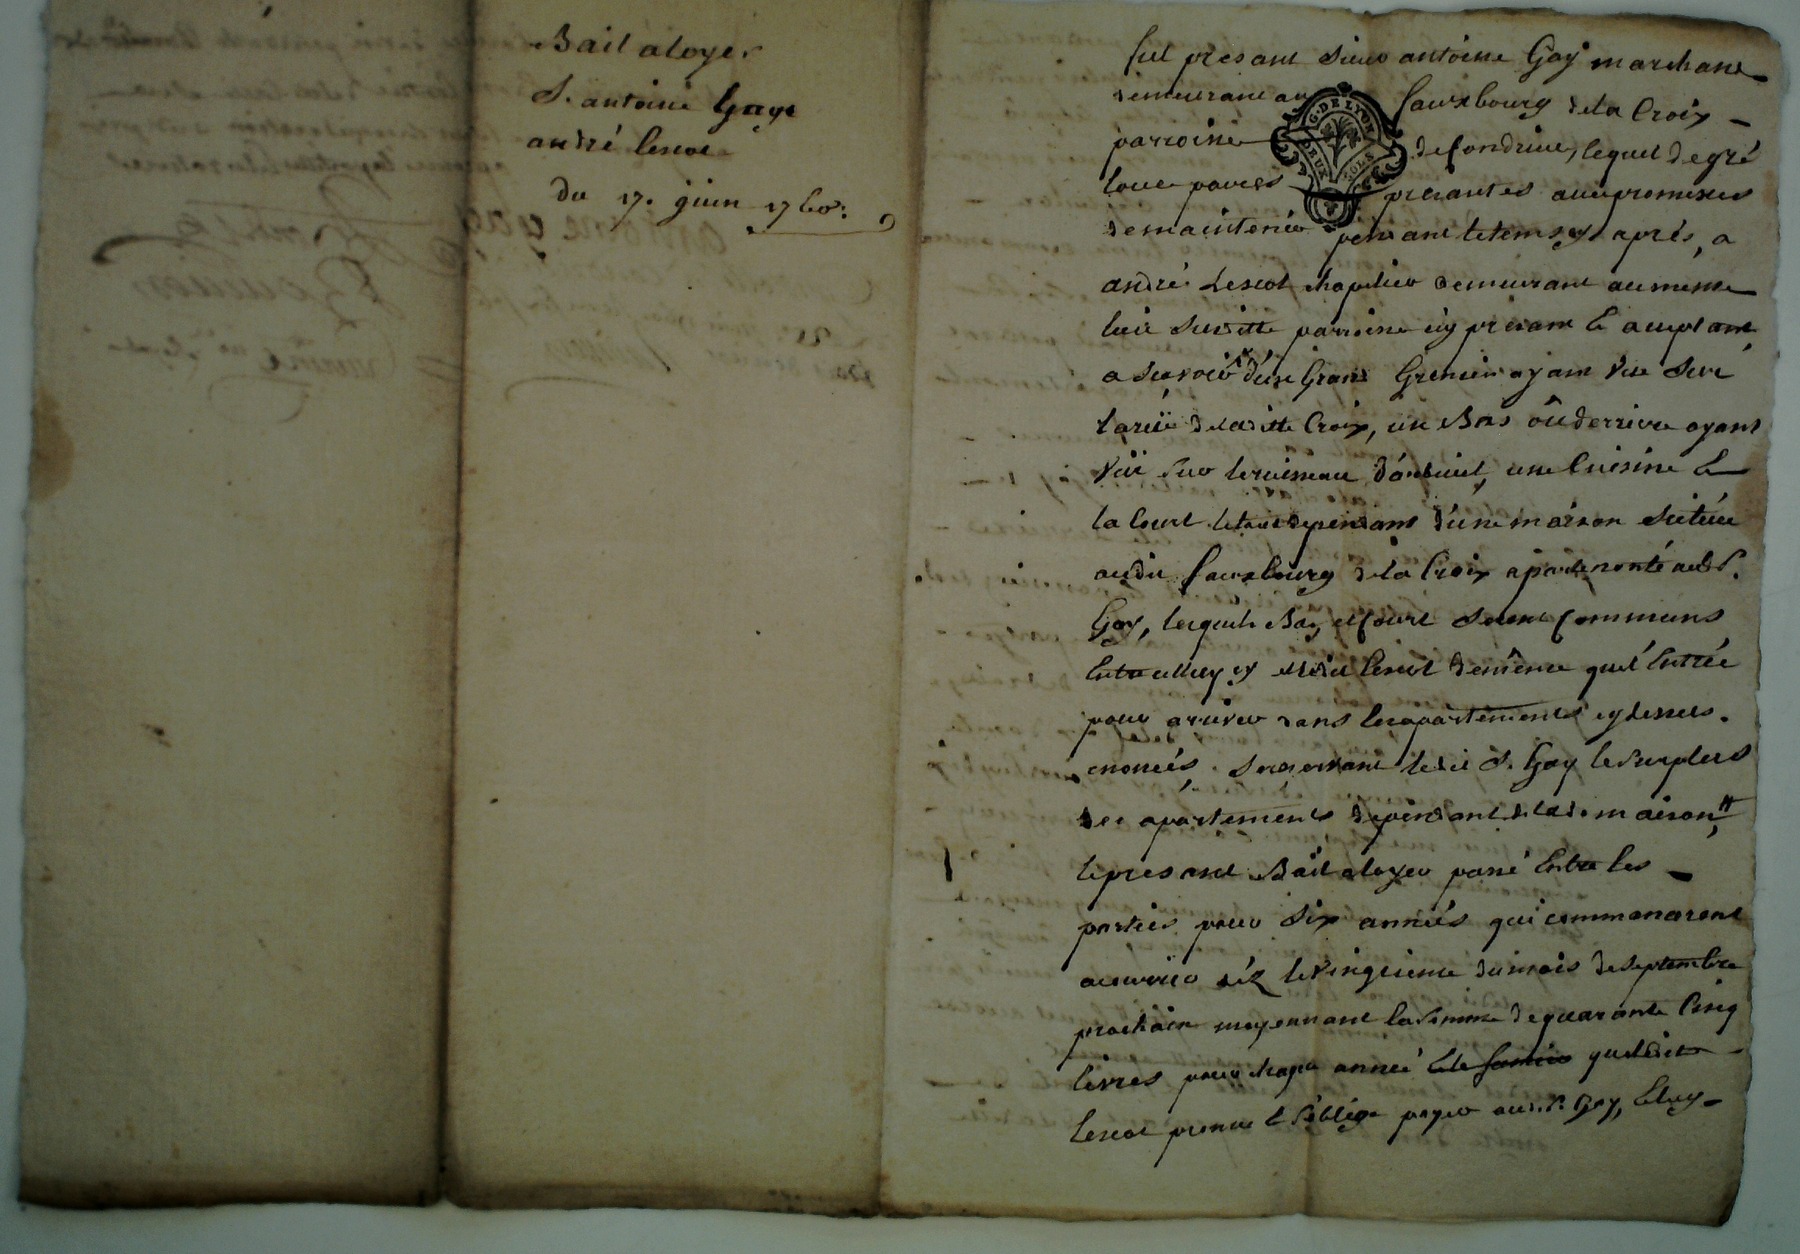 Bail a loyer
S. antoine Gaye
andré Lescot
du 17. juin 1760.
fut presant sieur antoine Gay marchant
demeurant au fauxbourg de la Croix
parroisse de Condrieu, lequel de gré
loue par ces presantes avec promesses
de maintenir pendant le tems cy apres, a
andré Lescot chapelier demeurant au meme
lieu susditte parroisse icy presant et acceptant
a sçavoir d'un Grand Grenier ayant vue sur
la rüe de laditte Croix, un Bas oû derriere ayant
vüe sur le ruisseau d'arbuel, une Cuisine et
la Court le tout dependant d'une maison scituée
audit fauxbourg de la Croix apartenante audt S.
Gay, lesquels Bas, et Court seront Communs
Entre luy et ledit Lescot de même que l'Entrée
pour arriver dans les apartements cy dessus
enoncés, se reservant ledit S. Gay le surplus
des apartements dependant de lad. maison
le presant Bail a loyer passé Entre les
parties pour six années qui commenceront
a courir dez le vingtieme du mois de septembre
prochain moyennant la somme de quarante Cinq
livres pour chaque année que ledit
Lescot promet et s'oblige payer aud. S. Gay, Et luy
DEUX SOLS
G. DE LYON